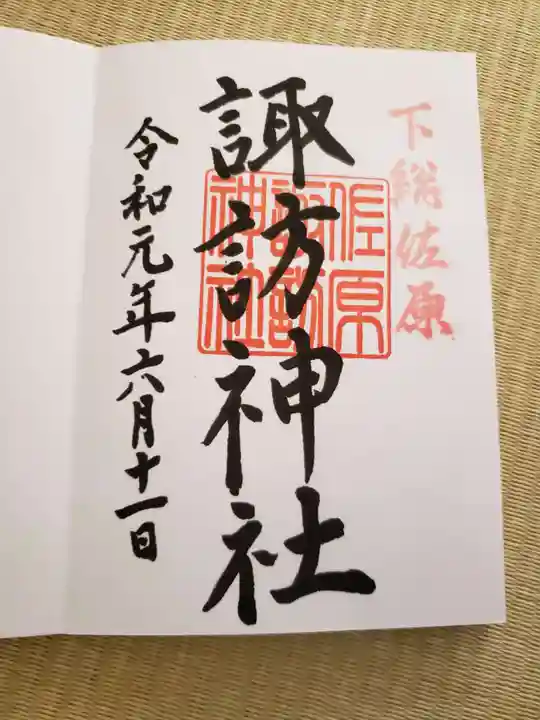 下総佐原
佐原
諏訪
神社
諏訪神社
令和元年六月十一日